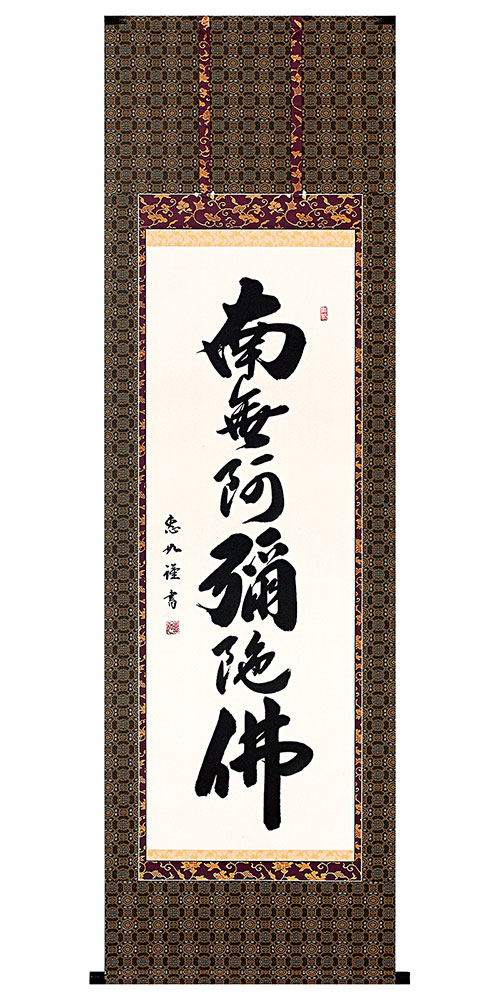 南無阿彌陀佛
恵如謹書